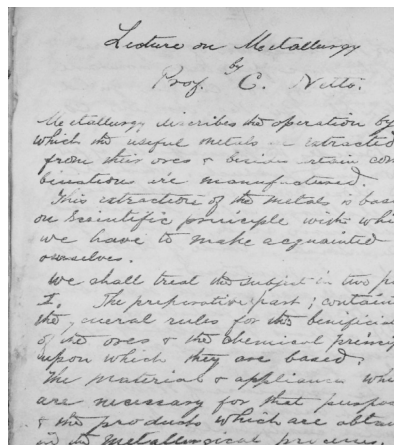 Lecture on Metallurgy
by
Prof. C. Netto.
Metallurgy discribes the operation by
which the useful metals extracted
from their ores & com
bination are manufactured.
This extraction of the metals is base
on Scientific principle with whi
we have to make acquainted
ourselves.
We shall treat the subject in two pa
I. The preparative part; contain
the general rules for the benificia
of the ores & the chemical princip
upon which they are based;
The material & appliances whi
are necessary for that purpos
& the products which are obtai
in the metallurgical process.